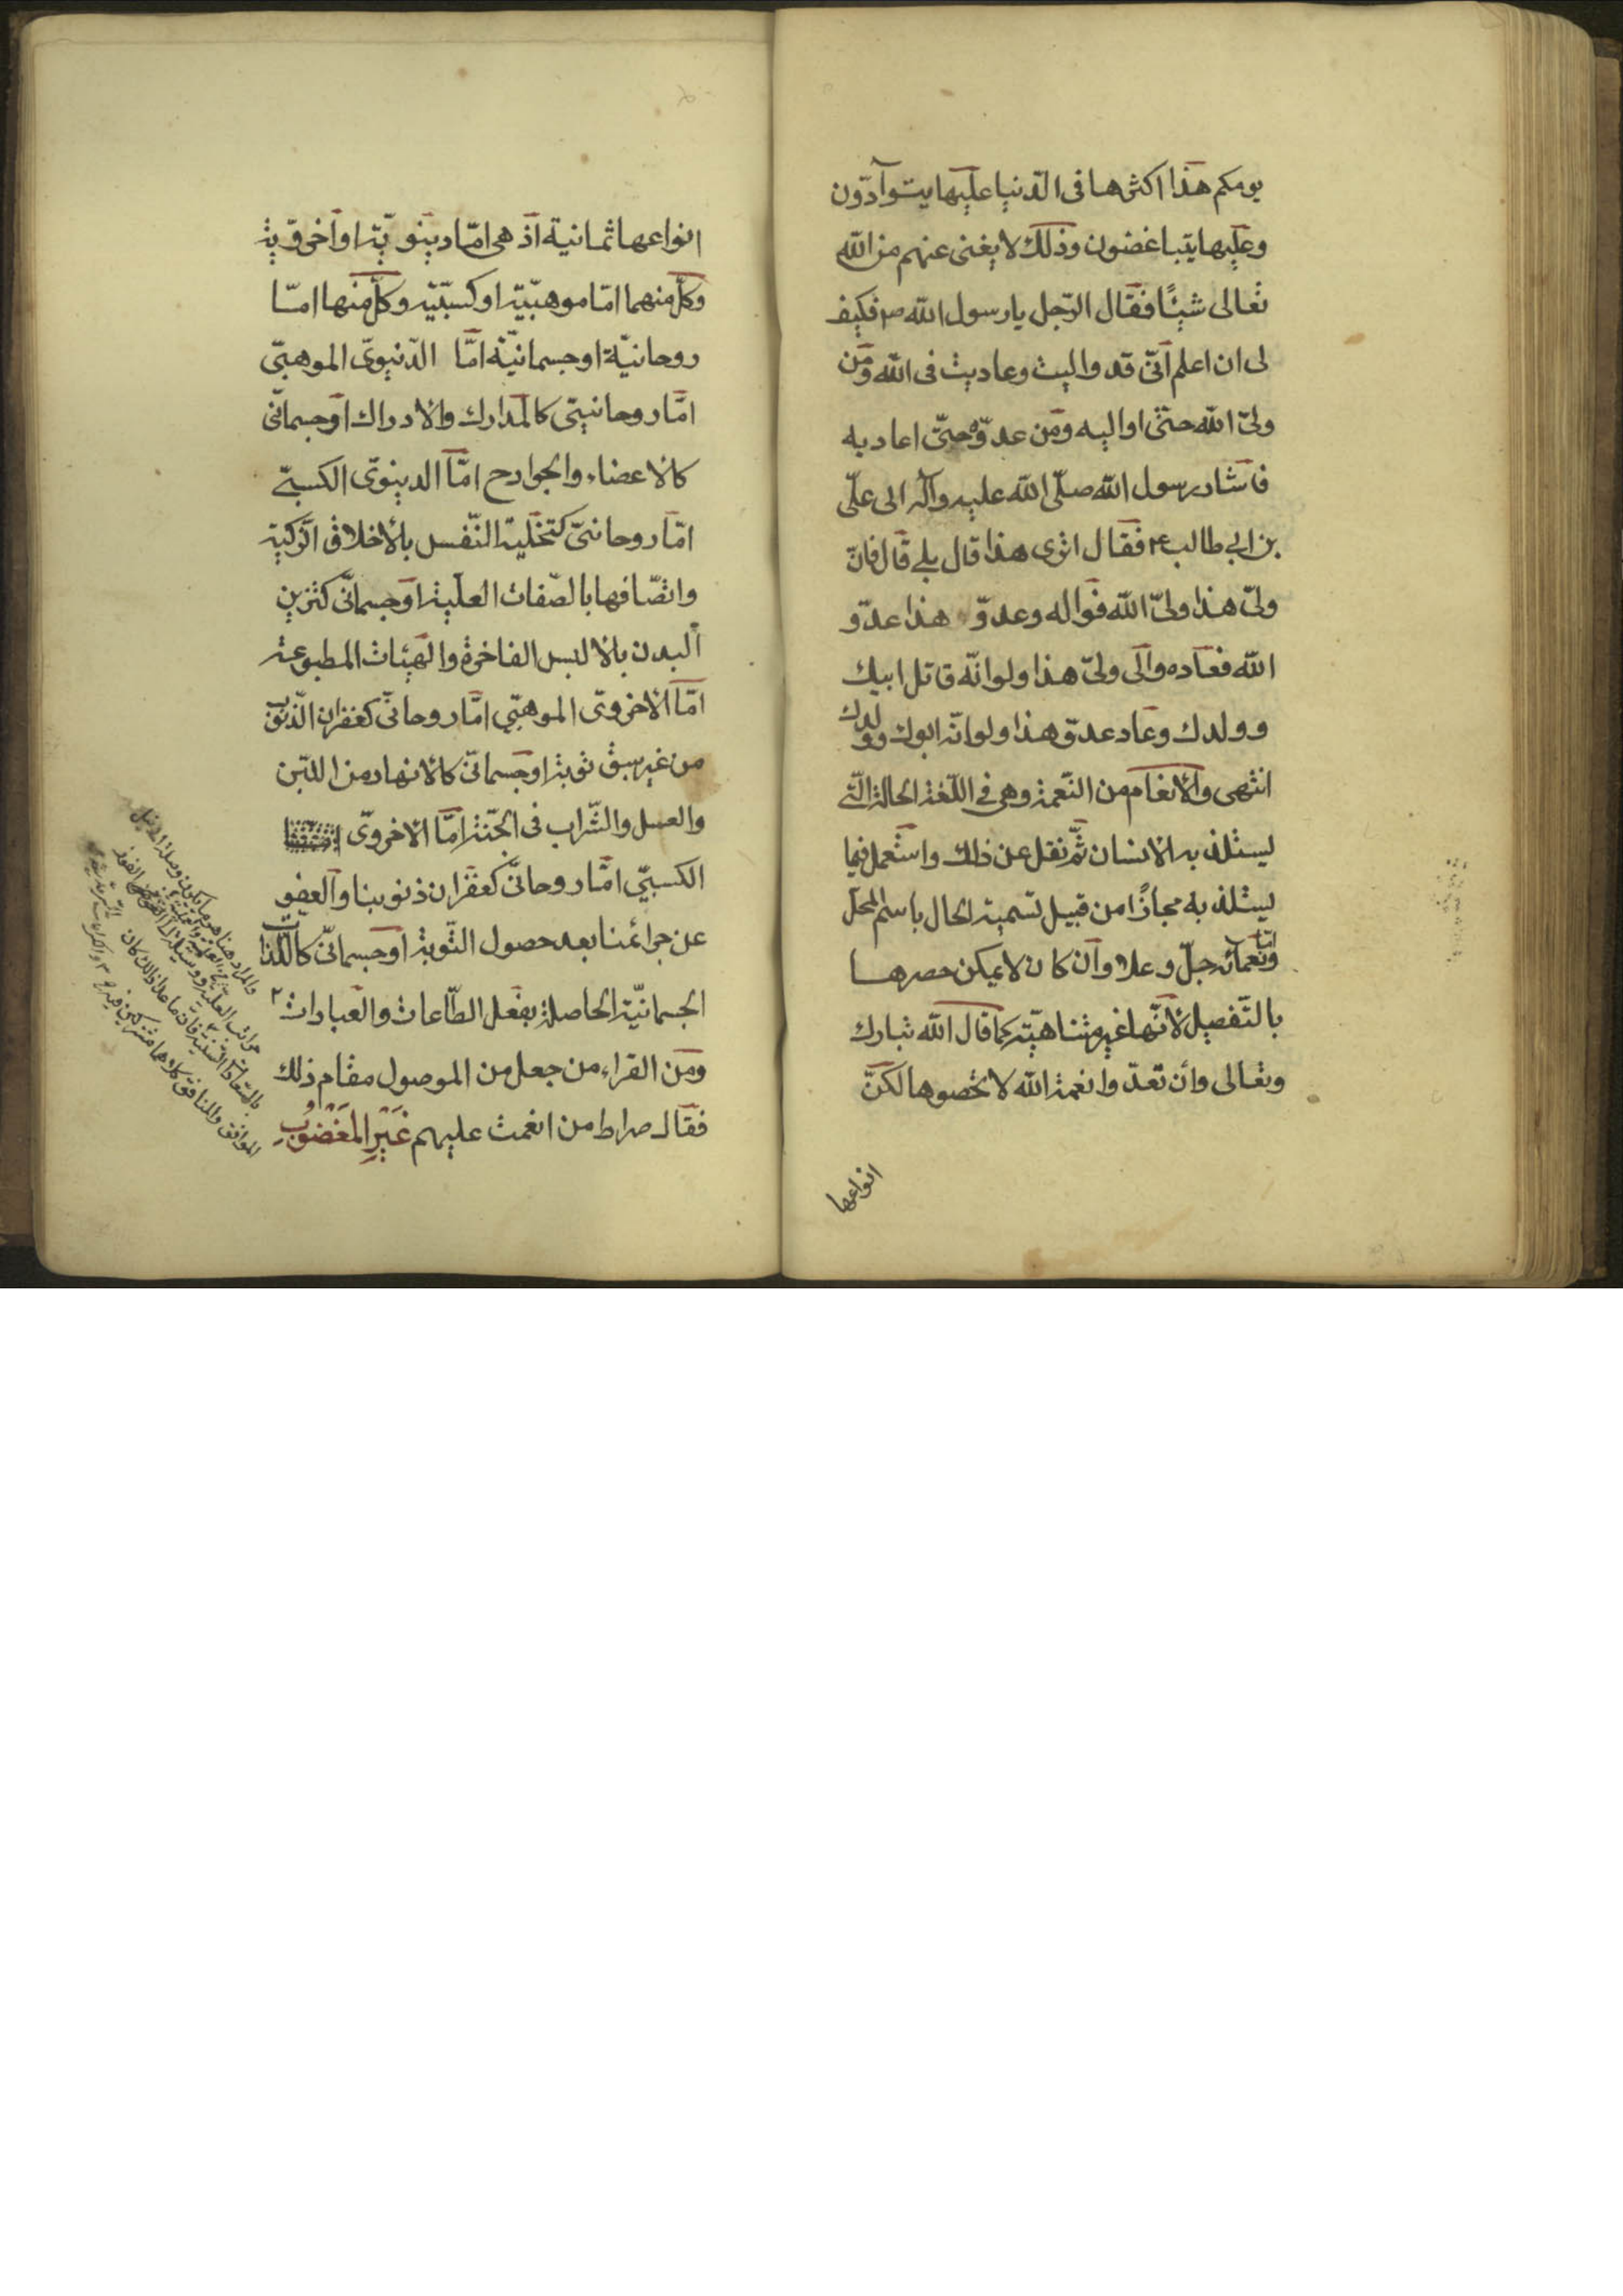 يومكم هذا اكثرها فى الدّنيا عليها يتوآدّون
وعليها يتباغضون وذلك لا يغنى عنهم من الله
تعالى شيئًا فقال الرّجل يا رسول الله ص فكيف
لى ان اعلم انّى قد واليت وعاديت فى الله ومن
ولىّ الله حتّى اواليه ومن عدوّه حتىّ اعاديه
فاشار رسول الله صلّى الله عليه وآله الى علىّ
بن ابي طالب ع فقال اترى هذا قال بلى قال فانّ
ولىّ هذا ولىّ الله فواله وعدوّ هذا عدوّ
الله فعاده وآلى ولىّ هذا ولو انّه قاتل ابيك
وولدك وعاد عدوّ هذا ولو انّه ابوك وولدك
انتهى والانعام من النّعمة وهى فى اللّغة الحالة الّتى
يستلذ به الانسان ثمّ نقل عن ذلك واستعمل فيما
يستلذ به مجازًا من قبيل تسمية الحال باسم المحلّ
ونعمائه جلّ وعلا وان كان لا يمكن حصرها
بالتّفصيل لانّها غير متناهيّة كما قال الله تبارك
وتعالى وان تعدّوا نعمة الله لا تحصوها لكنّ
انواعها
انواعها ثمانية اذ هى امّا دينويّة او اخرويّة
وكلّ منهما امّا موهبّيّة او كسبّيّة وكلّ منها امّا
روحانيّة او جسمانيّة امّا الدّنيوىّ الموهبّى
امّا روحانيّى كالمدارك والادراك او جسمانّى
كالاعضاء والجوارح امّا الدينوىّ الكسبىّ
امّا روحانىّ كتخلية النّفس بالأخلاق الزّكية
واتّصافها بالصّفات العليّة او جسمانّى كتزيين
البدن بالالبس الفاخرة والهيئات المطبوعة
امّا الأخروىّ الموهبّي امّا روحانّى كغفران الذّنوب
من غير سبق توبة او جسمانىّ كالانهار من اللّبن
والعسل والشّراب فى الجنّة امّا الاخروىّ
الكسبىّ امّا روحانىّ كغفران ذنوبنا والعفو
عن جرائمنا بعد حصول التّوبة او جسمانىّ كاللّذات
الجسمانيّة الحاصلة بفعل الطّاعات والعبادات ٢
ومن القراء من جعل من الموصول مقام ذلك
فقال صراط من انعمت عليهم غَيْرِ المَغْضُوْبِ